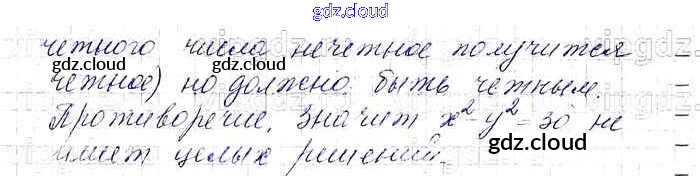 gdz.cloud
четного числа нечетное получится
четное) но должно быть четным.
gdz.cloud gdz.cloud
Противоречие. Значит x²-y²=30 не
gdz.cloud
имеет целых решений.
gdz.cloud